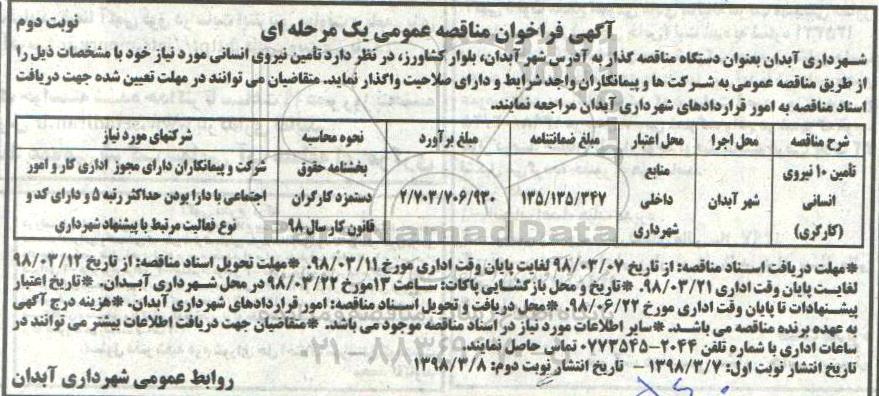 آگهی فراخوان مناقصه عمومی یک مرحله ای
نوبت دوم
شهرداری آبدان بعنوان دستگاه مناقصه گذار به آدرس شهر آبدان، بلوار کشاورز، در نظر دارد تأمین نیروی انسانی مورد نیاز خود با مشخصات ذیل را
از طریق مناقصه عمومی به شرکت ها و پیمانکاران واجد شرایط و دارای صلاحیت واگذار نماید. متقاضیان می توانند در مهلت تعیین شده جهت دریافت
اسناد مناقصه به امور قراردادهای شهرداری آبدان مراجعه نمایند.
شرح مناقصه	محل اجرا	محل اعتبار	مبلغ ضمانتنامه	مبلغ برآورد	نحوه محاسبه	شرکتهای مورد نیاز
تأمین ۱۰ نیروی	منابع	بخشنامه حقوق	شرکت و پیمانکاران دارای مجوز اداری کار و امور
انسانی	شهر آبدان	داخلی	۱۳۵/۱۳۵/۳۴۷	۲/۷۰۳/۷۰۶/۹۳۰	دستمزد کارگران	اجتماعی با دارا بودن حداکثر رتبه ۵ و دارای کد و
(کارگری)	شهرداری	قانون کار سال ۹۸	نوع فعالیت مرتبط با پیشنهاد شهرداری
*مهلت دریافت اسناد مناقصه: از تاریخ ۹۸/۰۳/۰۷ لغایت پایان وقت اداری مورخ ۹۸/۰۳/۱۱. *مهلت تحویل اسناد مناقصه: از تاریخ ۹۸/۰۳/۱۲
لغایت پایان وقت اداری ۹۸/۰۳/۲۱. *تاریخ و محل بازگشایی پاکات: ساعت ۱۳ مورخ ۹۸/۰۳/۲۲ در محل شهرداری آبدان. *تاریخ اعتبار
پیشنهادات تا پایان وقت اداری مورخ ۹۸/۰۶/۲۲. *محل دریافت و تحویل اسناد مناقصه: امور قراردادهای شهرداری آبدان. *هزینه درج آگهی
به عهده برنده مناقصه می باشد. *سایر اطلاعات مورد نیاز در اسناد مناقصه موجود می باشد. *متقاضیان جهت دریافت اطلاعات بیشتر می توانند در
ساعات اداری با شماره تلفن ۲۰۴۴-۰۷۷۳۵۴۵ تماس حاصل نمایند.
تاریخ انتشار نوبت اول: ۱۳۹۸/۳/۷ - تاریخ انتشار نوبت دوم: ۱۳۹۸/۳/۸
روابط عمومی شهرداری آبدان